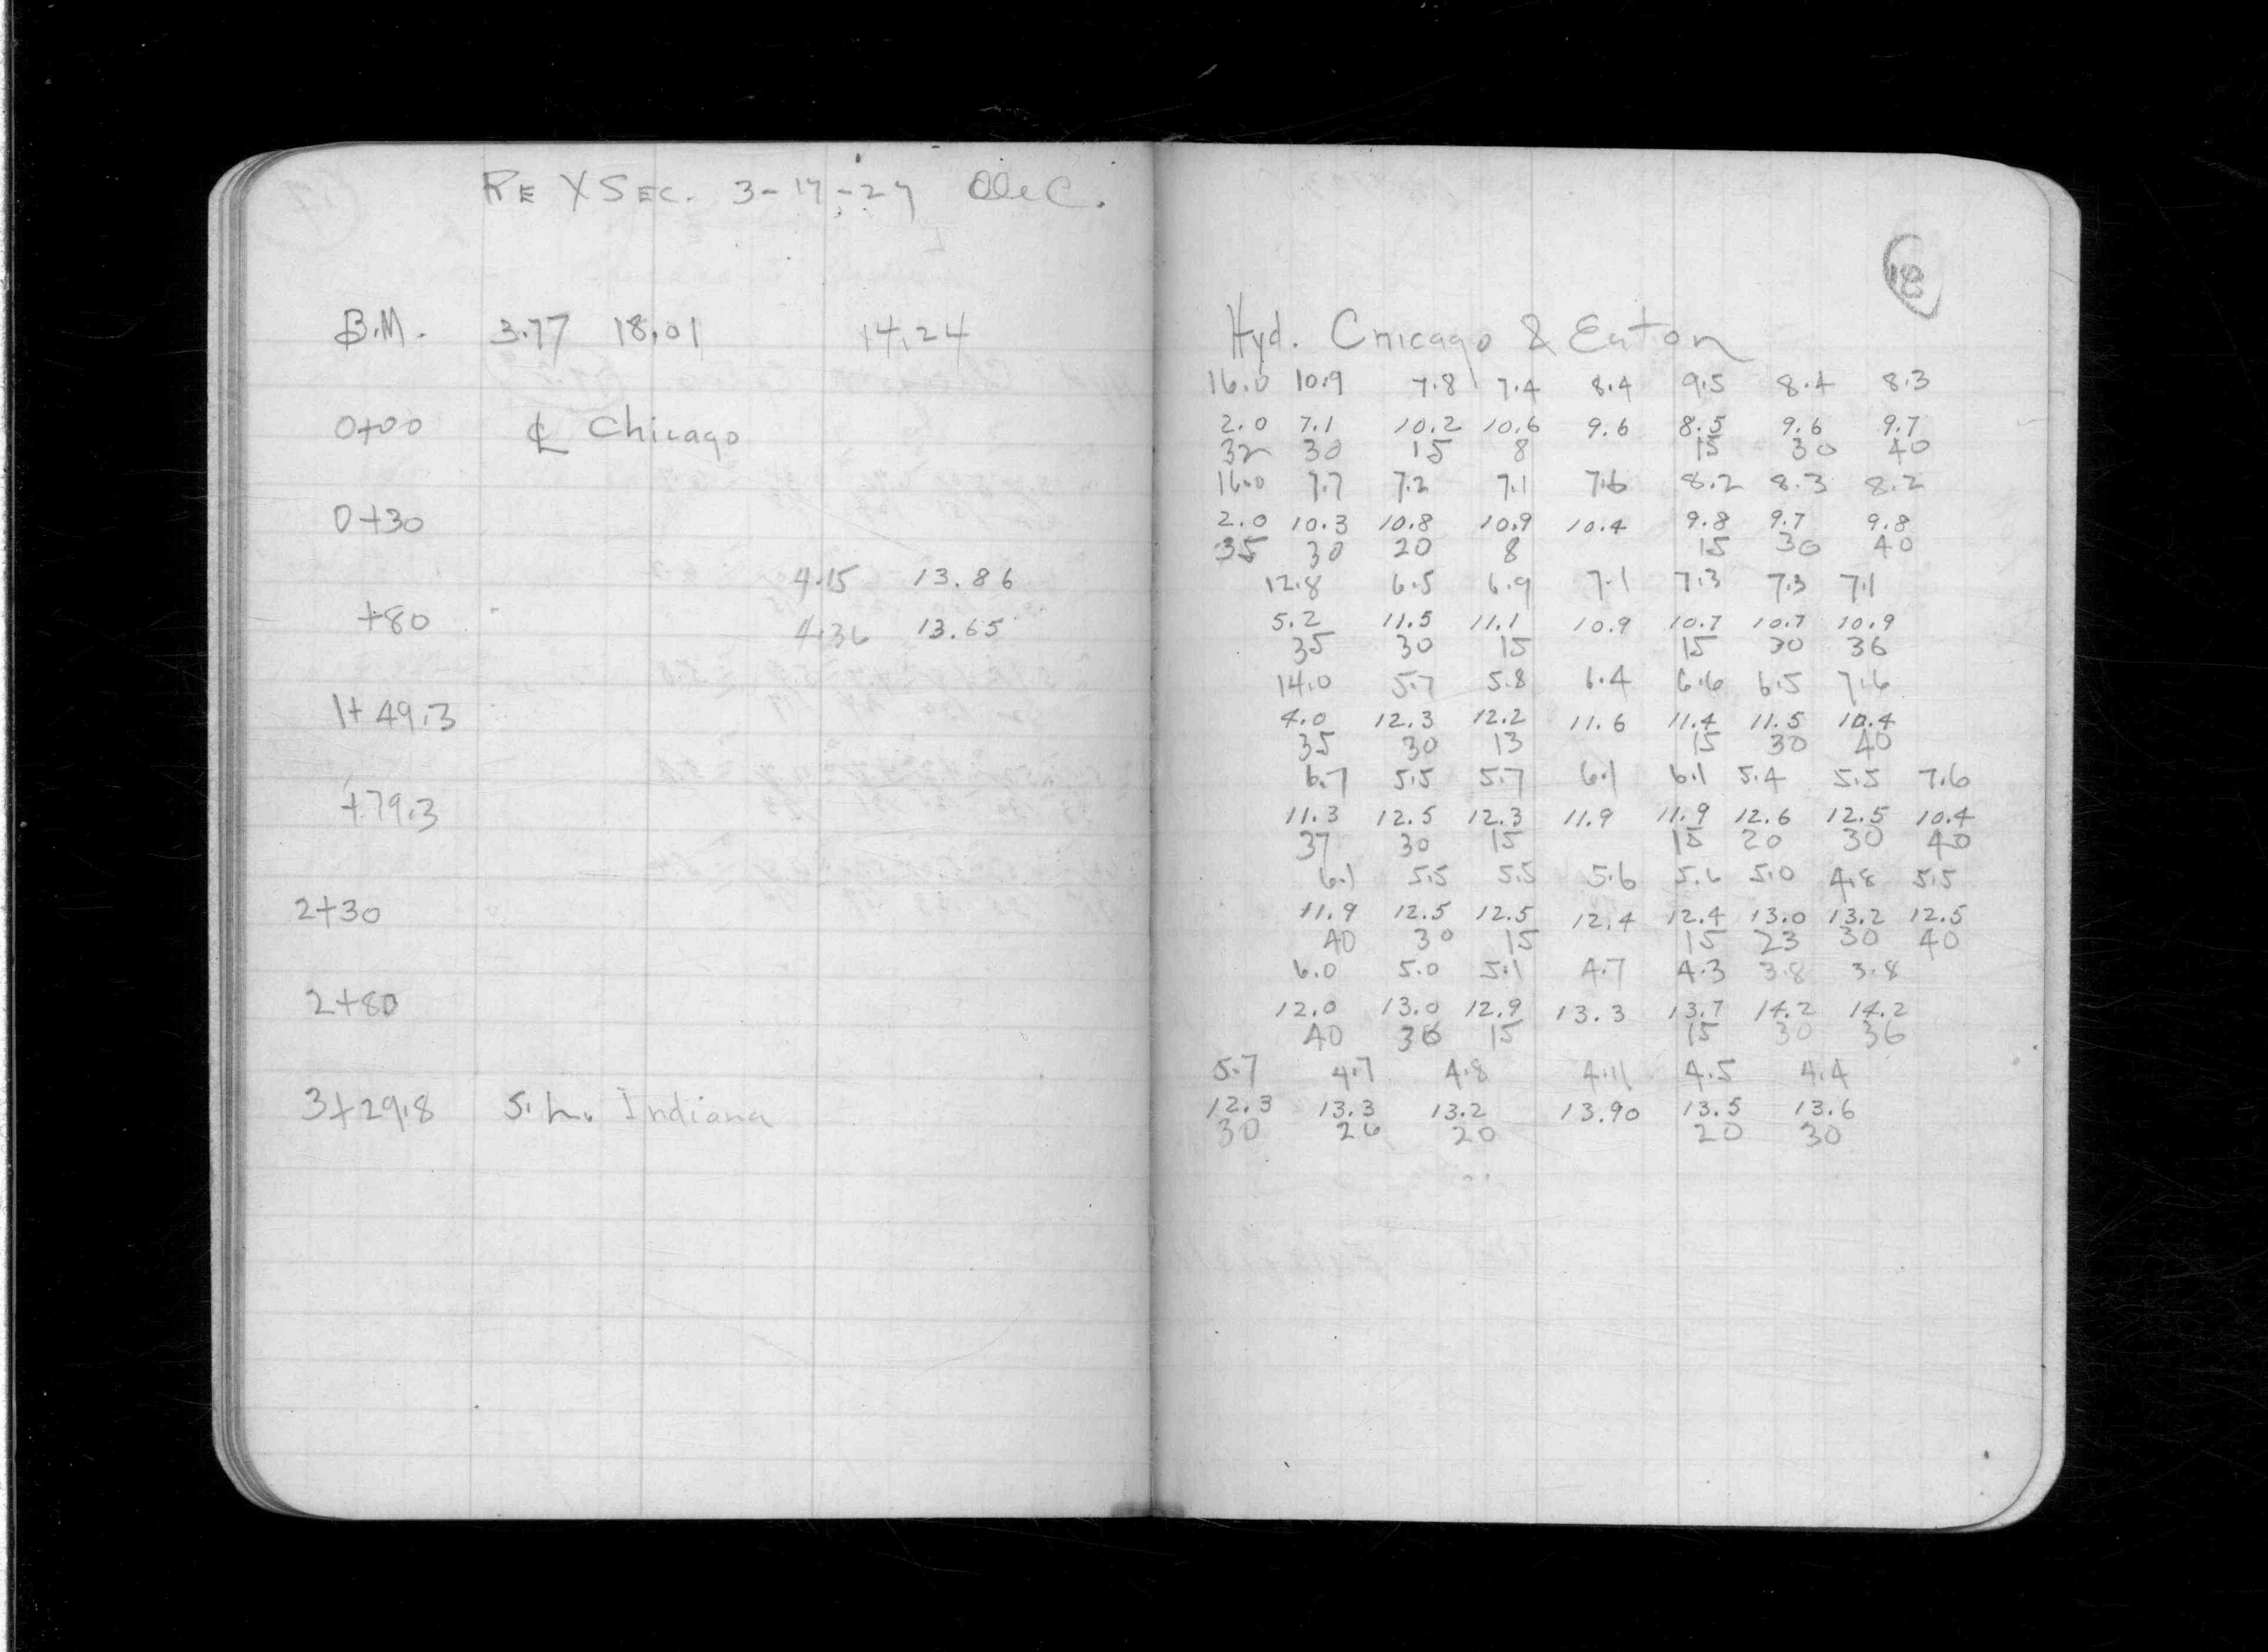 RE X SEC. 3-17-27
B.M. 3.77 18.01 14.24
0+00 ℄ Chicago
0+30
4.15 13.86
+80 4.36 13.65
1+49.3
+79.3
2+30
2+80
3+29.8 S.L. Indiana
18
Hyd. Chicago & Eaton
16.0 10.9 7.8 7.4 8.4 9.5 8.4 8.3
2.0 7.1 10.2 10.6 9.6 8.5 9.6 9.7
32 30 15 8 15 30 40
16.0 7.7 7.2 7.1 7.6 8.2 8.3 8.2
2.0 10.3 10.8 10.9 10.4 9.8 9.7 9.8
35 30 20 8 15 30 40
12.8 6.5 6.9 7.1 7.3 7.3 7.1
5.2 11.5 11.1 10.9 10.7 10.7 10.9
35 30 15 15 30 36
14.0 5.7 5.8 6.4 6.6 6.5 7.6
4.0 12.3 12.2 11.6 11.4 11.5 10.4
35 30 13 15 30 40
6.7 5.5 5.7 6.1 6.1 5.4 5.5 7.6
11.3 12.5 12.3 11.9 11.9 12.6 12.5 10.4
37 30 15 15 20 30 40
6.1 5.5 5.5 5.6 5.6 5.0 4.8 5.5
11.9 12.5 12.5 12.4 12.4 13.0 13.2 12.5
40 30 15 15 23 30 40
6.0 5.0 5.1 4.7 4.3 3.8 3.8
12.0 13.0 12.9 13.3 13.7 14.2 14.2
40 30 15 15 30 36
5.7 4.7 4.8 4.11 4.5 4.4
12.3 13.3 13.2 13.90 13.5 13.6
30 26 20 20 30